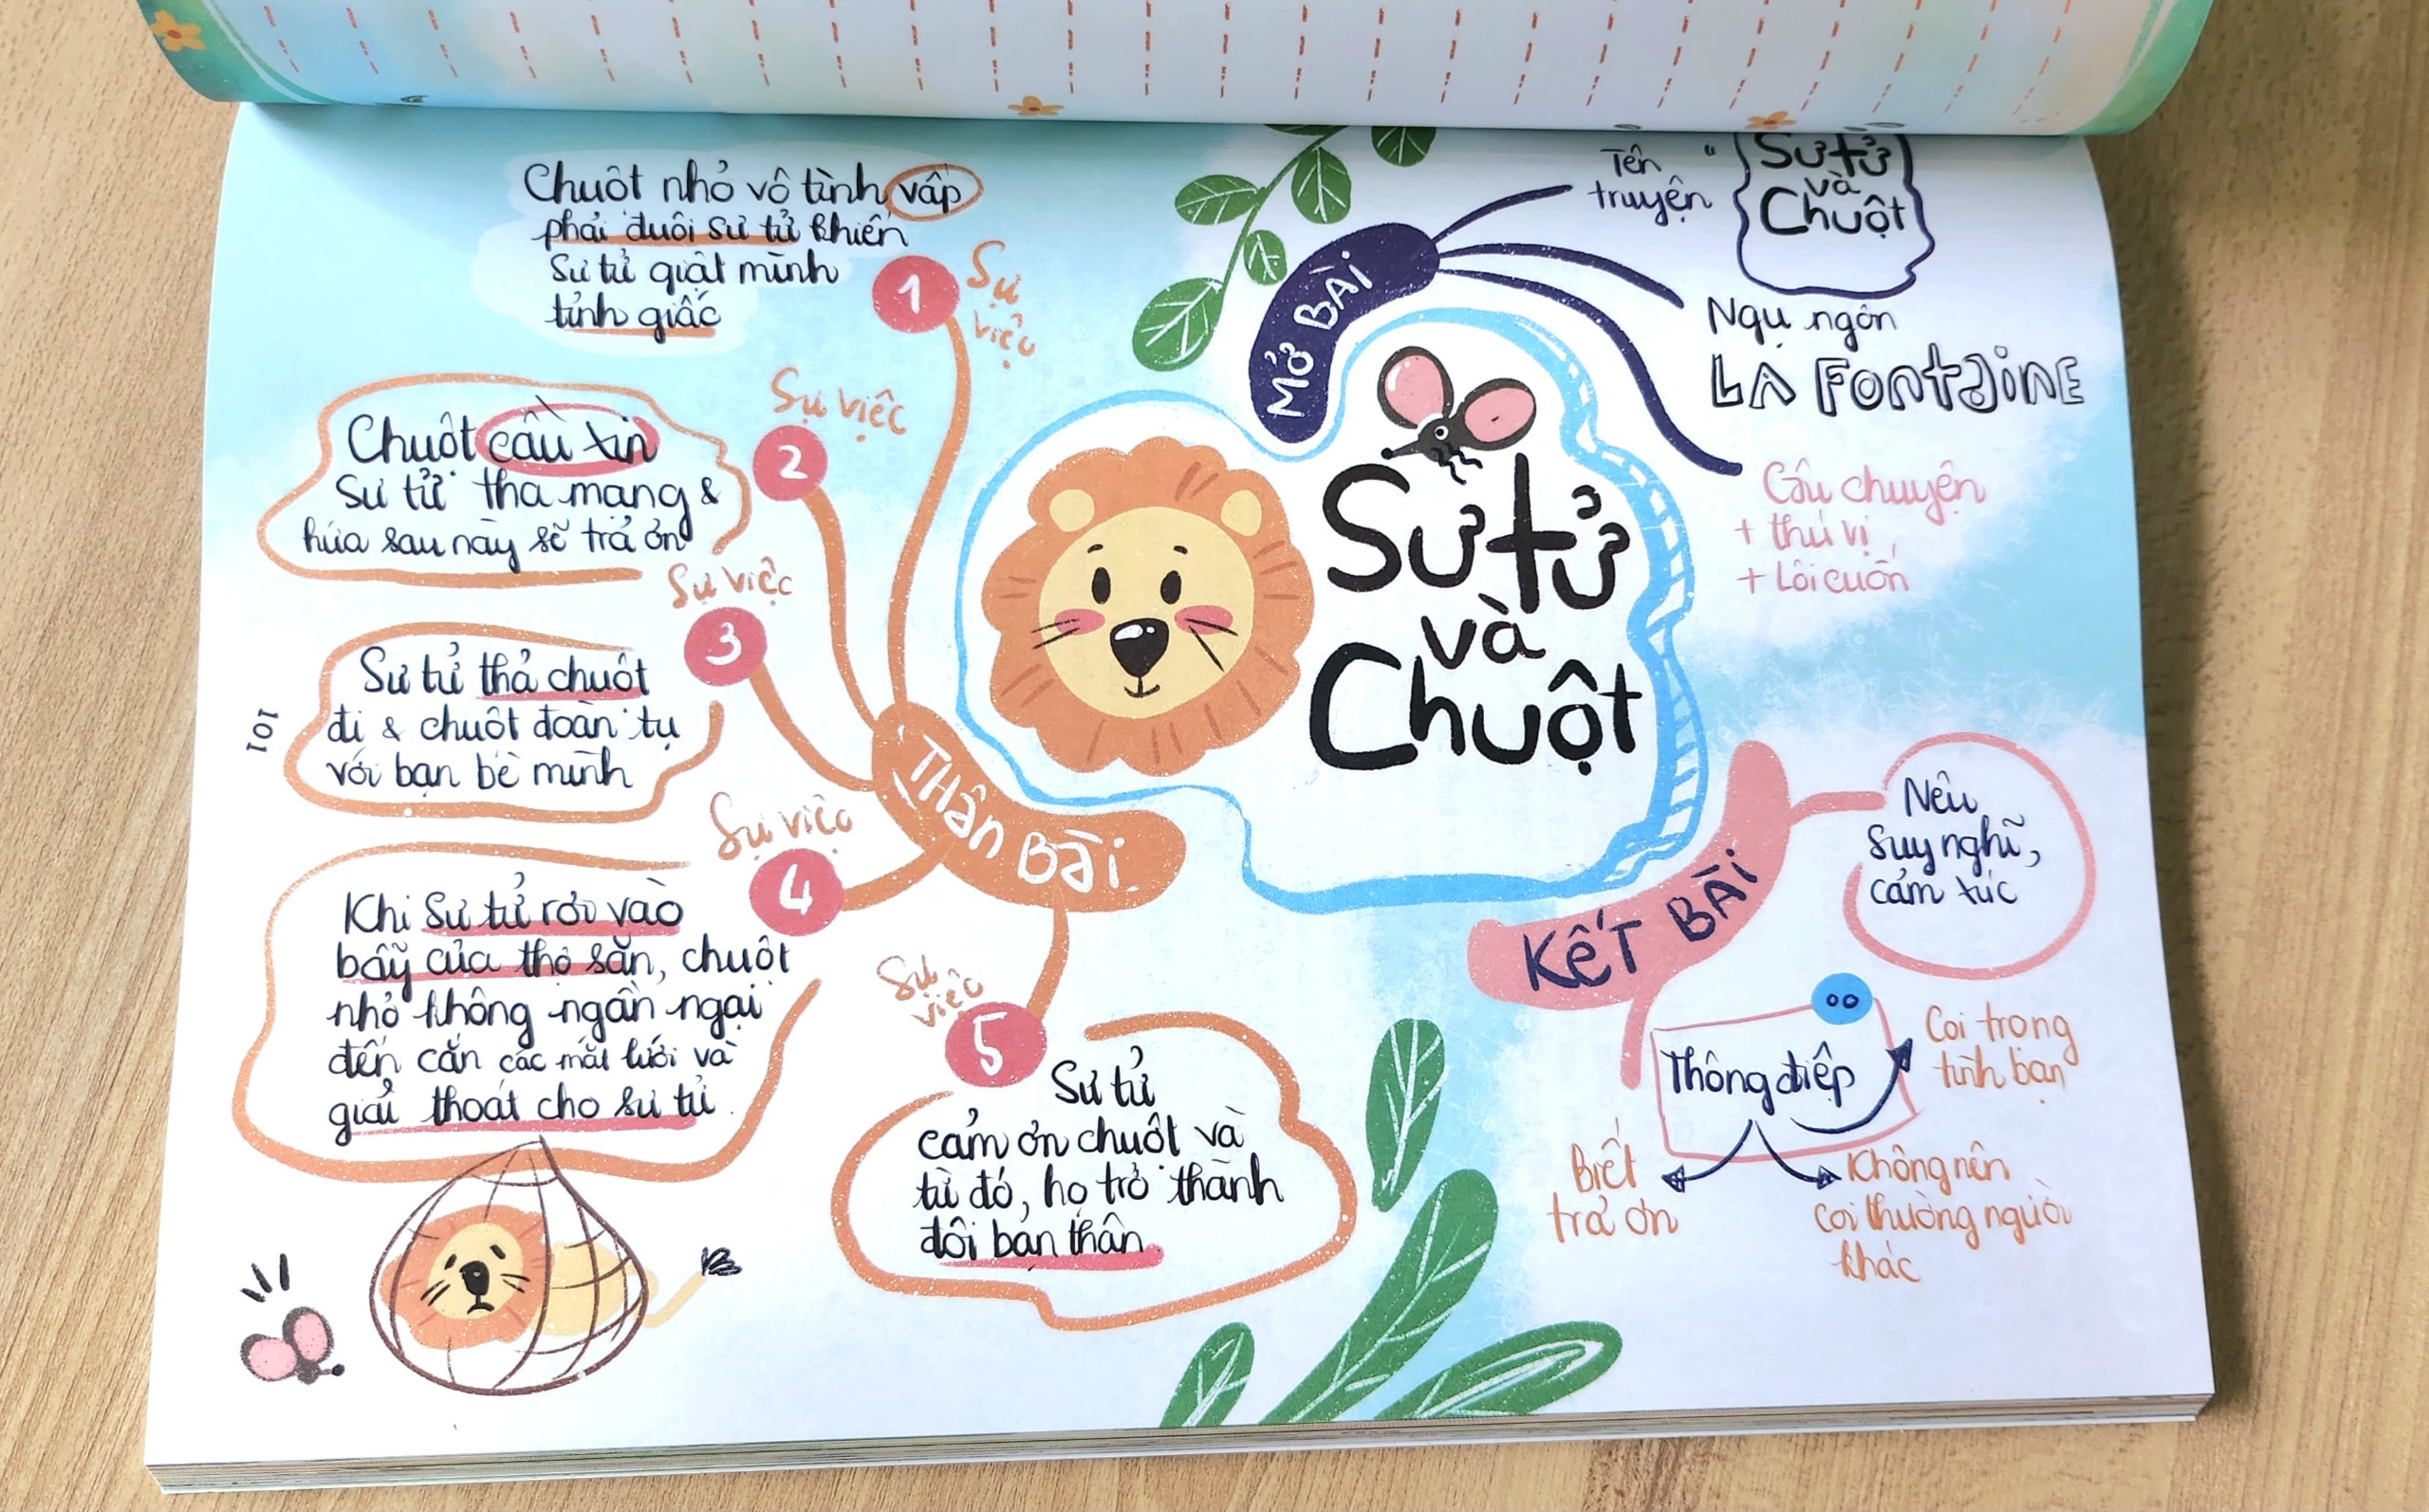 Sư tử
và
Chuột
MỞ BÀI
Tên
truyện
"
Sư tử
và
Chuột
Ngụ ngôn
LA FONTAINE
Câu chuyện
+ thú vị
+ Lôi cuốn
THÂN BÀI
1
Sự
việc
Chuột nhỏ vô tình vấp
phải đuôi sư tử khiến
sư tử giật mình
tỉnh giấc
2
Sự việc
Chuột cầu xin
sư tử tha mạng &
hứa sau này sẽ trả ơn
3
Sự việc
Sư tử thả chuột
đi & chuột đoàn tụ
với bạn bè mình
4
Sự việc
Khi sư tử rơi vào
bẫy của thợ săn, chuột
nhỏ không ngần ngại
đến cắn các mắt lưới và
giải thoát cho sư tử.
5
Sự
việc
Sư tử
cảm ơn chuột và
từ đó, họ trở thành
đôi bạn thân
KẾT BÀI
Nêu
suy nghĩ,
cảm xúc
Thông điệp
Coi trọng
tình bạn
Biết
trả ơn
Không nên
coi thường người
khác
101